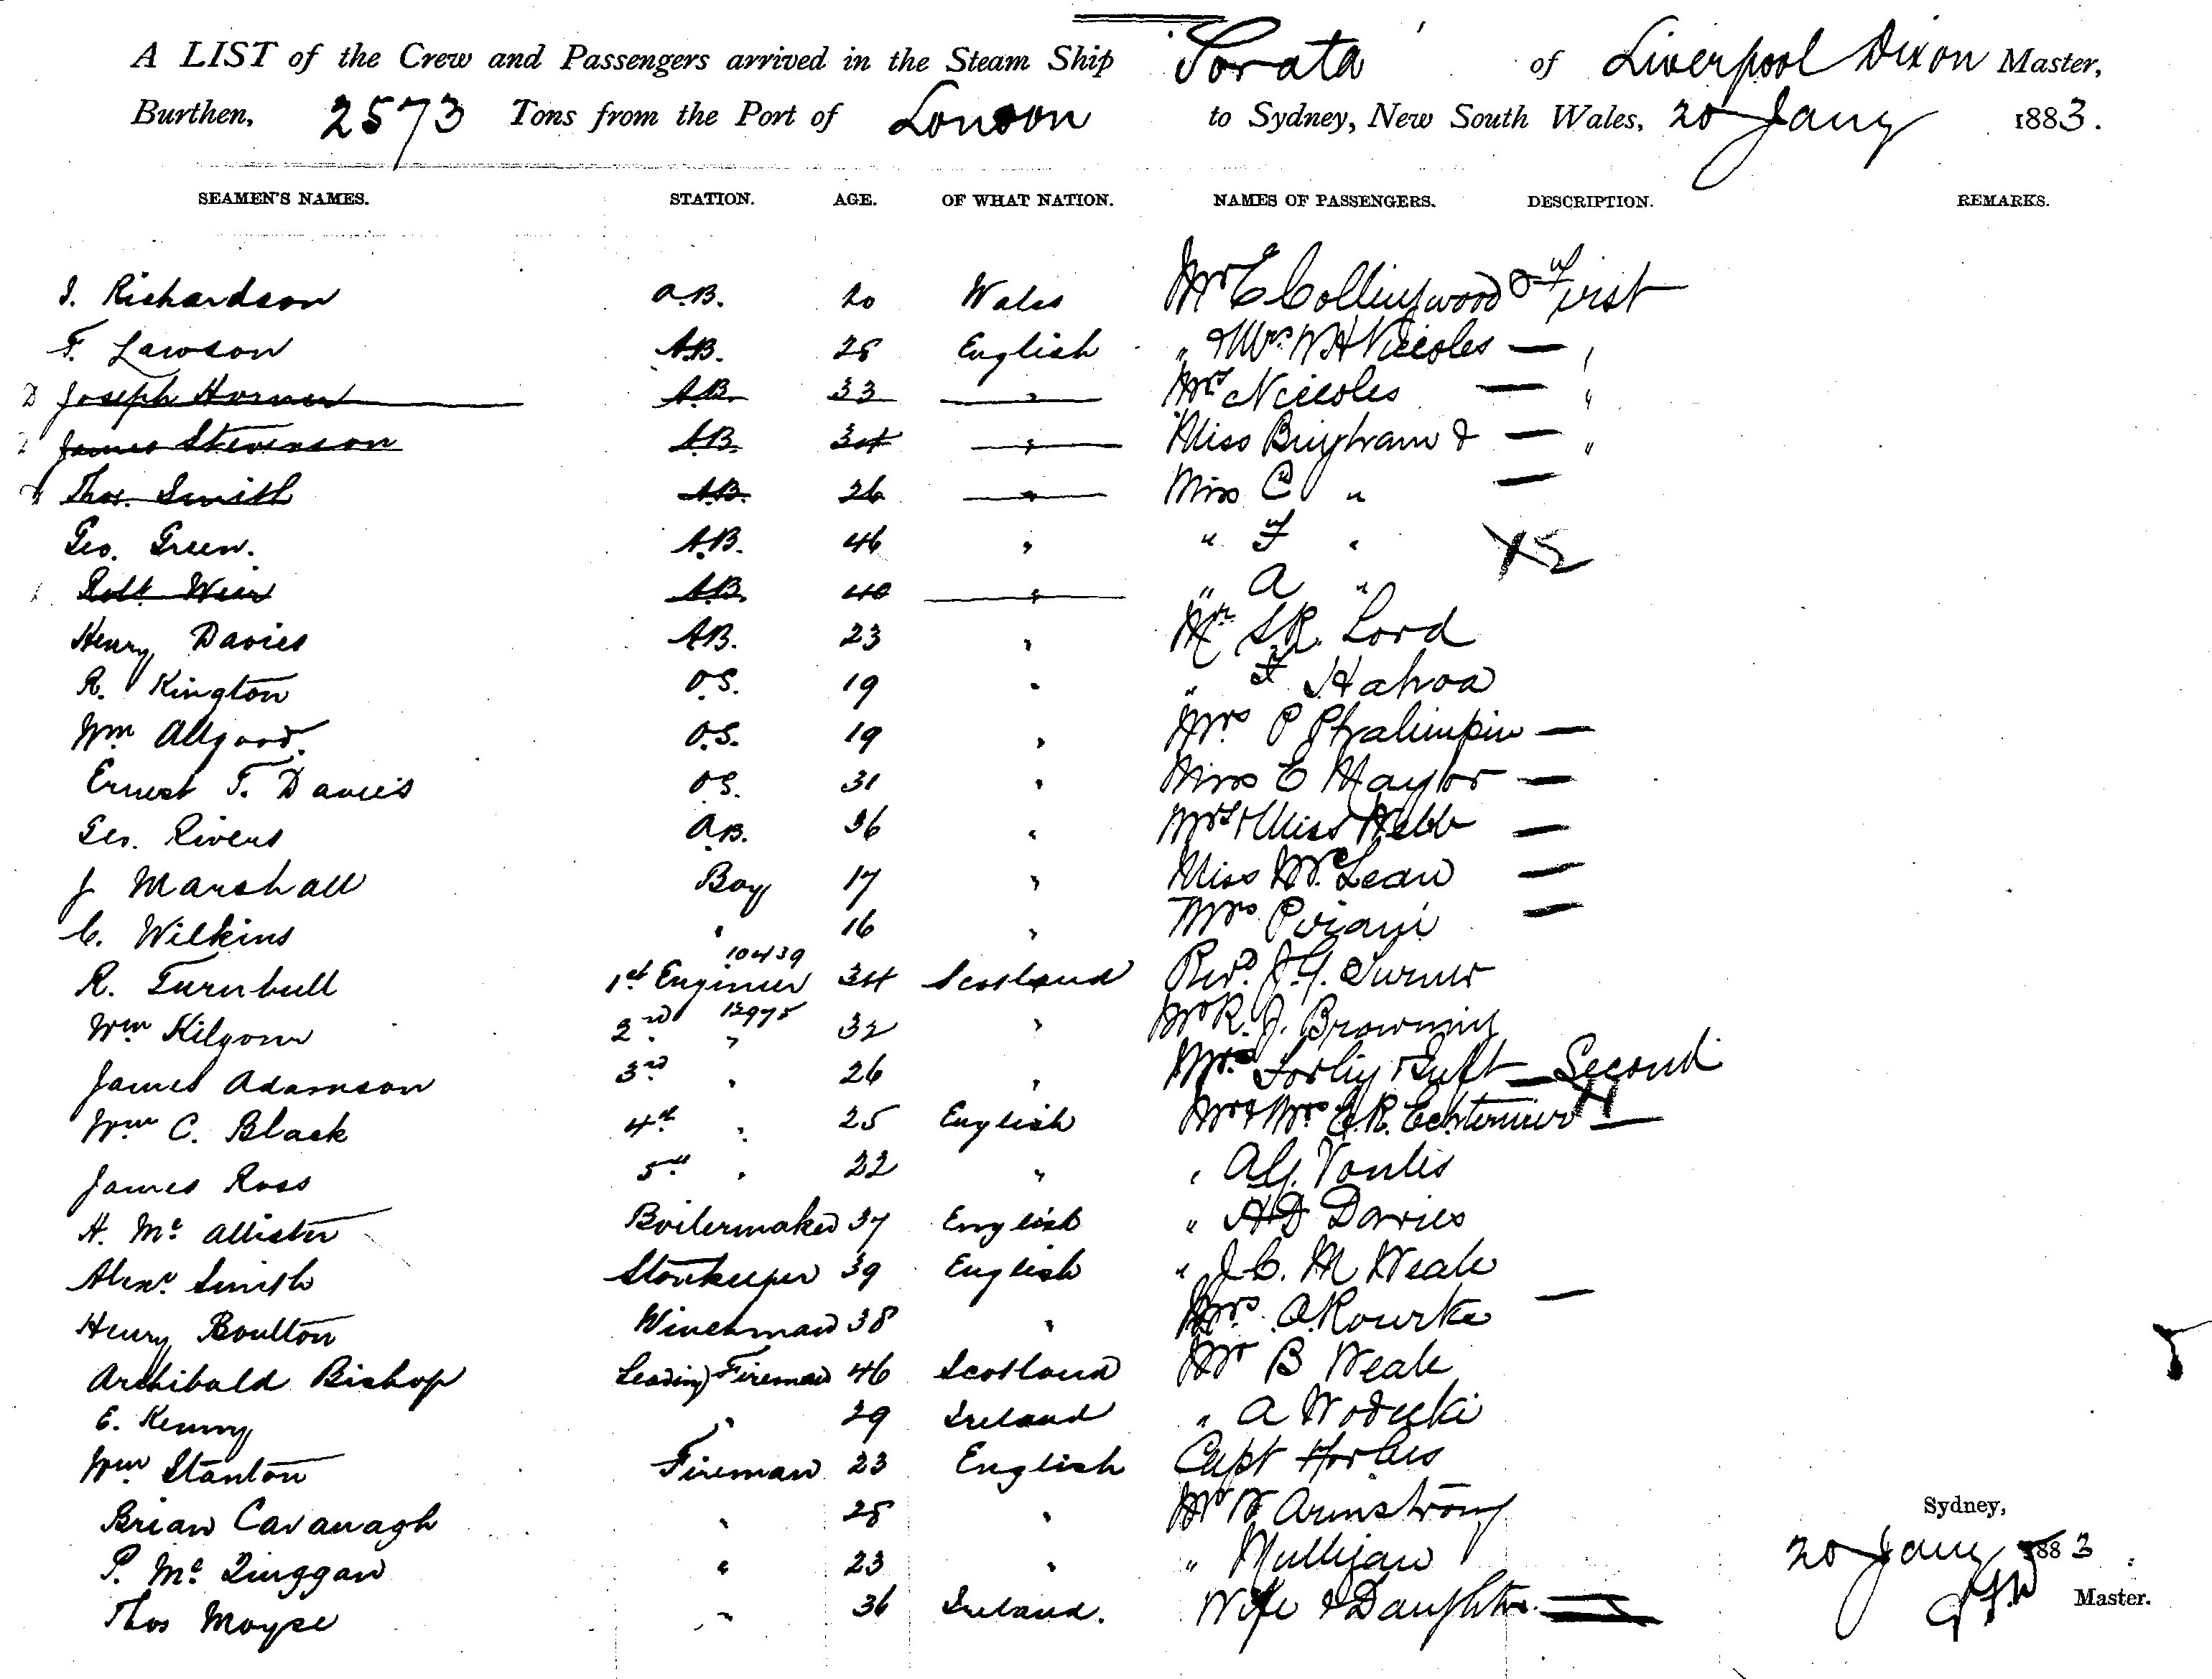 A LIST of the Crew and Passengers arrived in the Steam Ship Sorata of Liverpool Dixon Master,
Burthen, 2573 Tons from the Port of London to Sydney, New South Wales, 20 Jany 1883.
SEAMEN'S NAMES. STATION. AGE. OF WHAT NATION. NAMES OF PASSENGERS. DESCRIPTION. REMARKS.
J. Richardson A.B. 20 Wales Mr E Collingwood First
F. Lawson A.B. 28 English " & Mrs W H Niccoles — "
D Joseph Horner A.B. 33 " Mrs Niccoles — "
James Stevenson A.B. 34 " Miss Brigham & — "
Thos. Smith A.B. 26 " Miss C " —
Geo. Green. A.B. 46 " " F "
Robt Weir A.B. 40 " " A "
Henry Davies A.B. 23 " Mr S.R. Lord
R. Kington O.S. 19 " "
Wm Allgood. O.S. 19 " Mrs P —
Ernest T. Davies O.S. 31 " Miss E Maylor —
Geo. Rivers A.B. 36 " Mrs & Miss Webb —
J Marshall Boy 17 " Miss McLean —
C. Wilkins " 16 " Mrs —
10439
R. Turnbull 1st Engineer 34 Scotland Revd. J. G. Turner
12975
Wm Kilgour 2nd " 32 " Mr R. J. Browning
James Adamson 3rd " 26 " Mrs — Second
Wm C. Black 4th " 25 English Mr & Mrs —
James Ross 5th " 22 " " A G
H. Mc Allister Boilermaker 37 English " H D Davies
Alexr. Smith Storekeeper 39 English " J C. M Weale
Henry Boulton Winchman 38 " Mrs O'Rourke —
Archibald Bishop Leading Fireman 46 Scotland Mr B Weale
E. Kenny " 29 Ireland " A
Wm Stanton Fireman 23 English Capt
Brian Cavanagh " 28 " Mr W Armstrong
P. Mc " 23 " " Mulligan
Thos Moyse " 36 Ireland. Wife & Daughter
Sydney,
20 Jany 1883
Master.